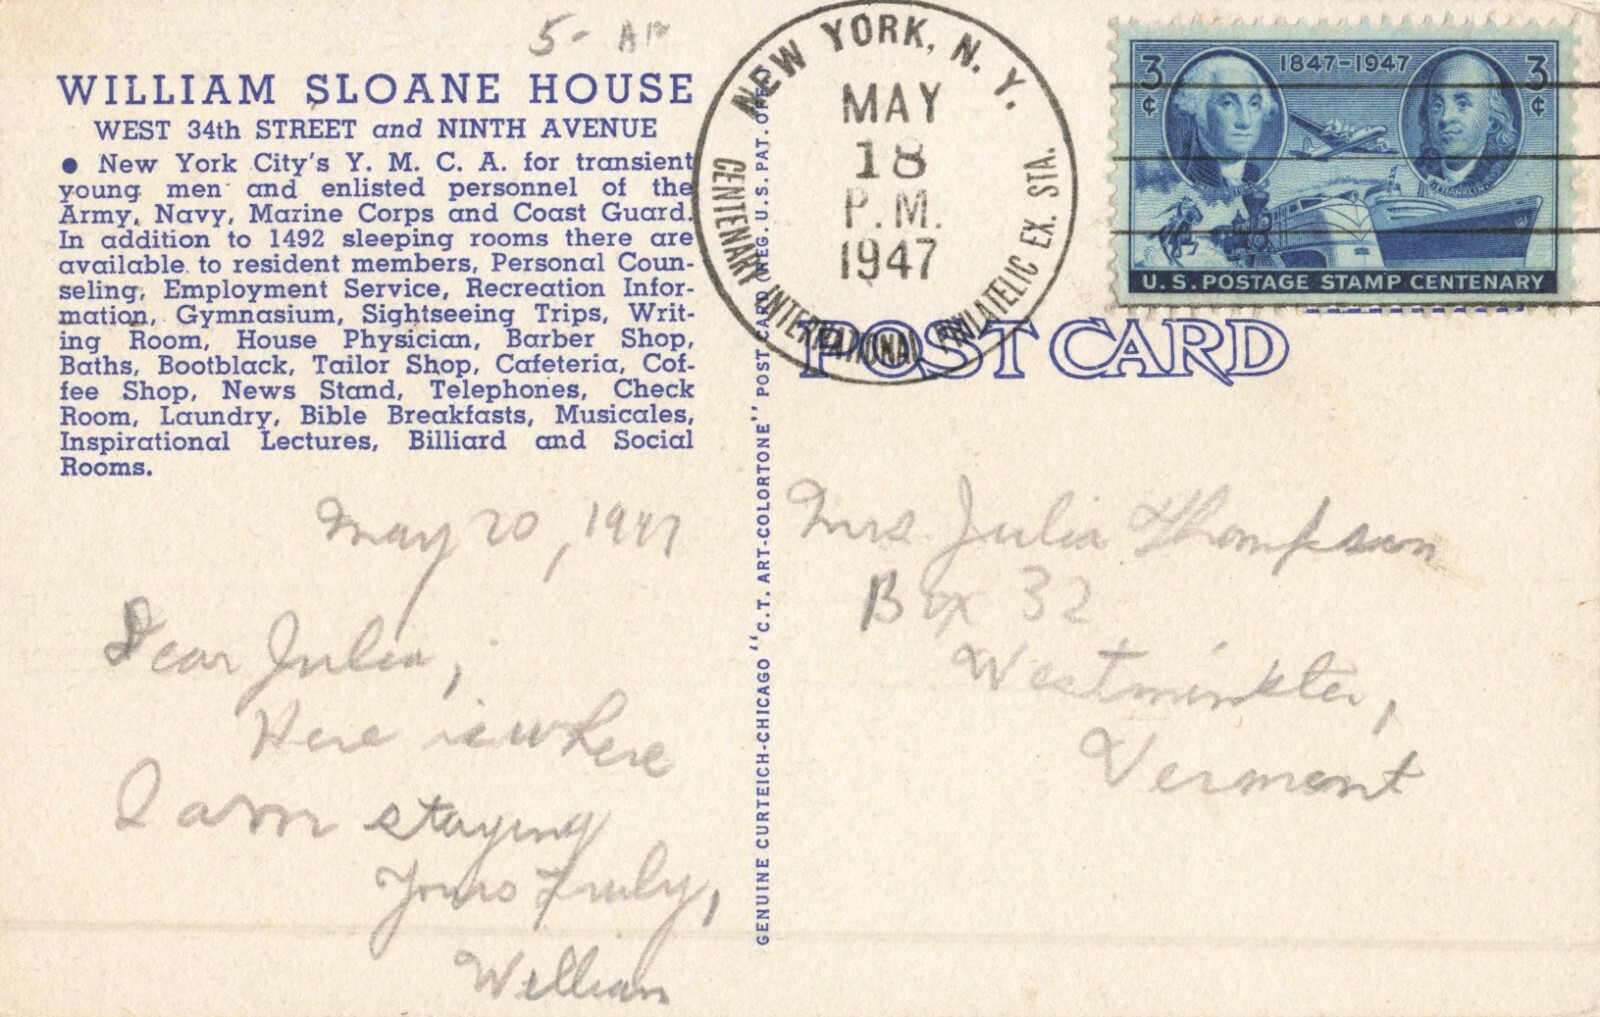 5- AP
WILLIAM SLOANE HOUSE
WEST 34th STREET and NINTH AVENUE
● New York City's Y. M. C. A. for transient
young men and enlisted personnel of the
Army, Navy, Marine Corps and Coast Guard.
In addition to 1492 sleeping rooms there are
available to resident members, Personal Coun-
seling, Employment Service, Recreation Infor-
mation, Gymnasium, Sightseeing Trips, Writ-
ing Room, House Physician, Barber Shop,
Baths, Bootblack, Tailor Shop, Cafeteria, Cof-
fee Shop, News Stand, Telephones, Check
Room, Laundry, Bible Breakfasts, Musicales,
Inspirational Lectures, Billiard and Social
Rooms.
May 20, 1947
Dear Julia,
Here is where
I am staying
Yours Truly,
William
GENUINE CURTEICH-CHICAGO "C.T. ART-COLORTONE" POST CARD (REG. U.S. PAT. OFF.)
NEW YORK, N. Y.
MAY
18
P.M.
1947
CENTENARY INTERNATIONAL PHILATELIC EX. STA.
3¢
1847-1947
3¢
WASHINGTON
FRANKLIN
U.S. POSTAGE STAMP CENTENARY
POST CARD
Mrs Julia Thompson
Box 32
Westminster,
Vermont